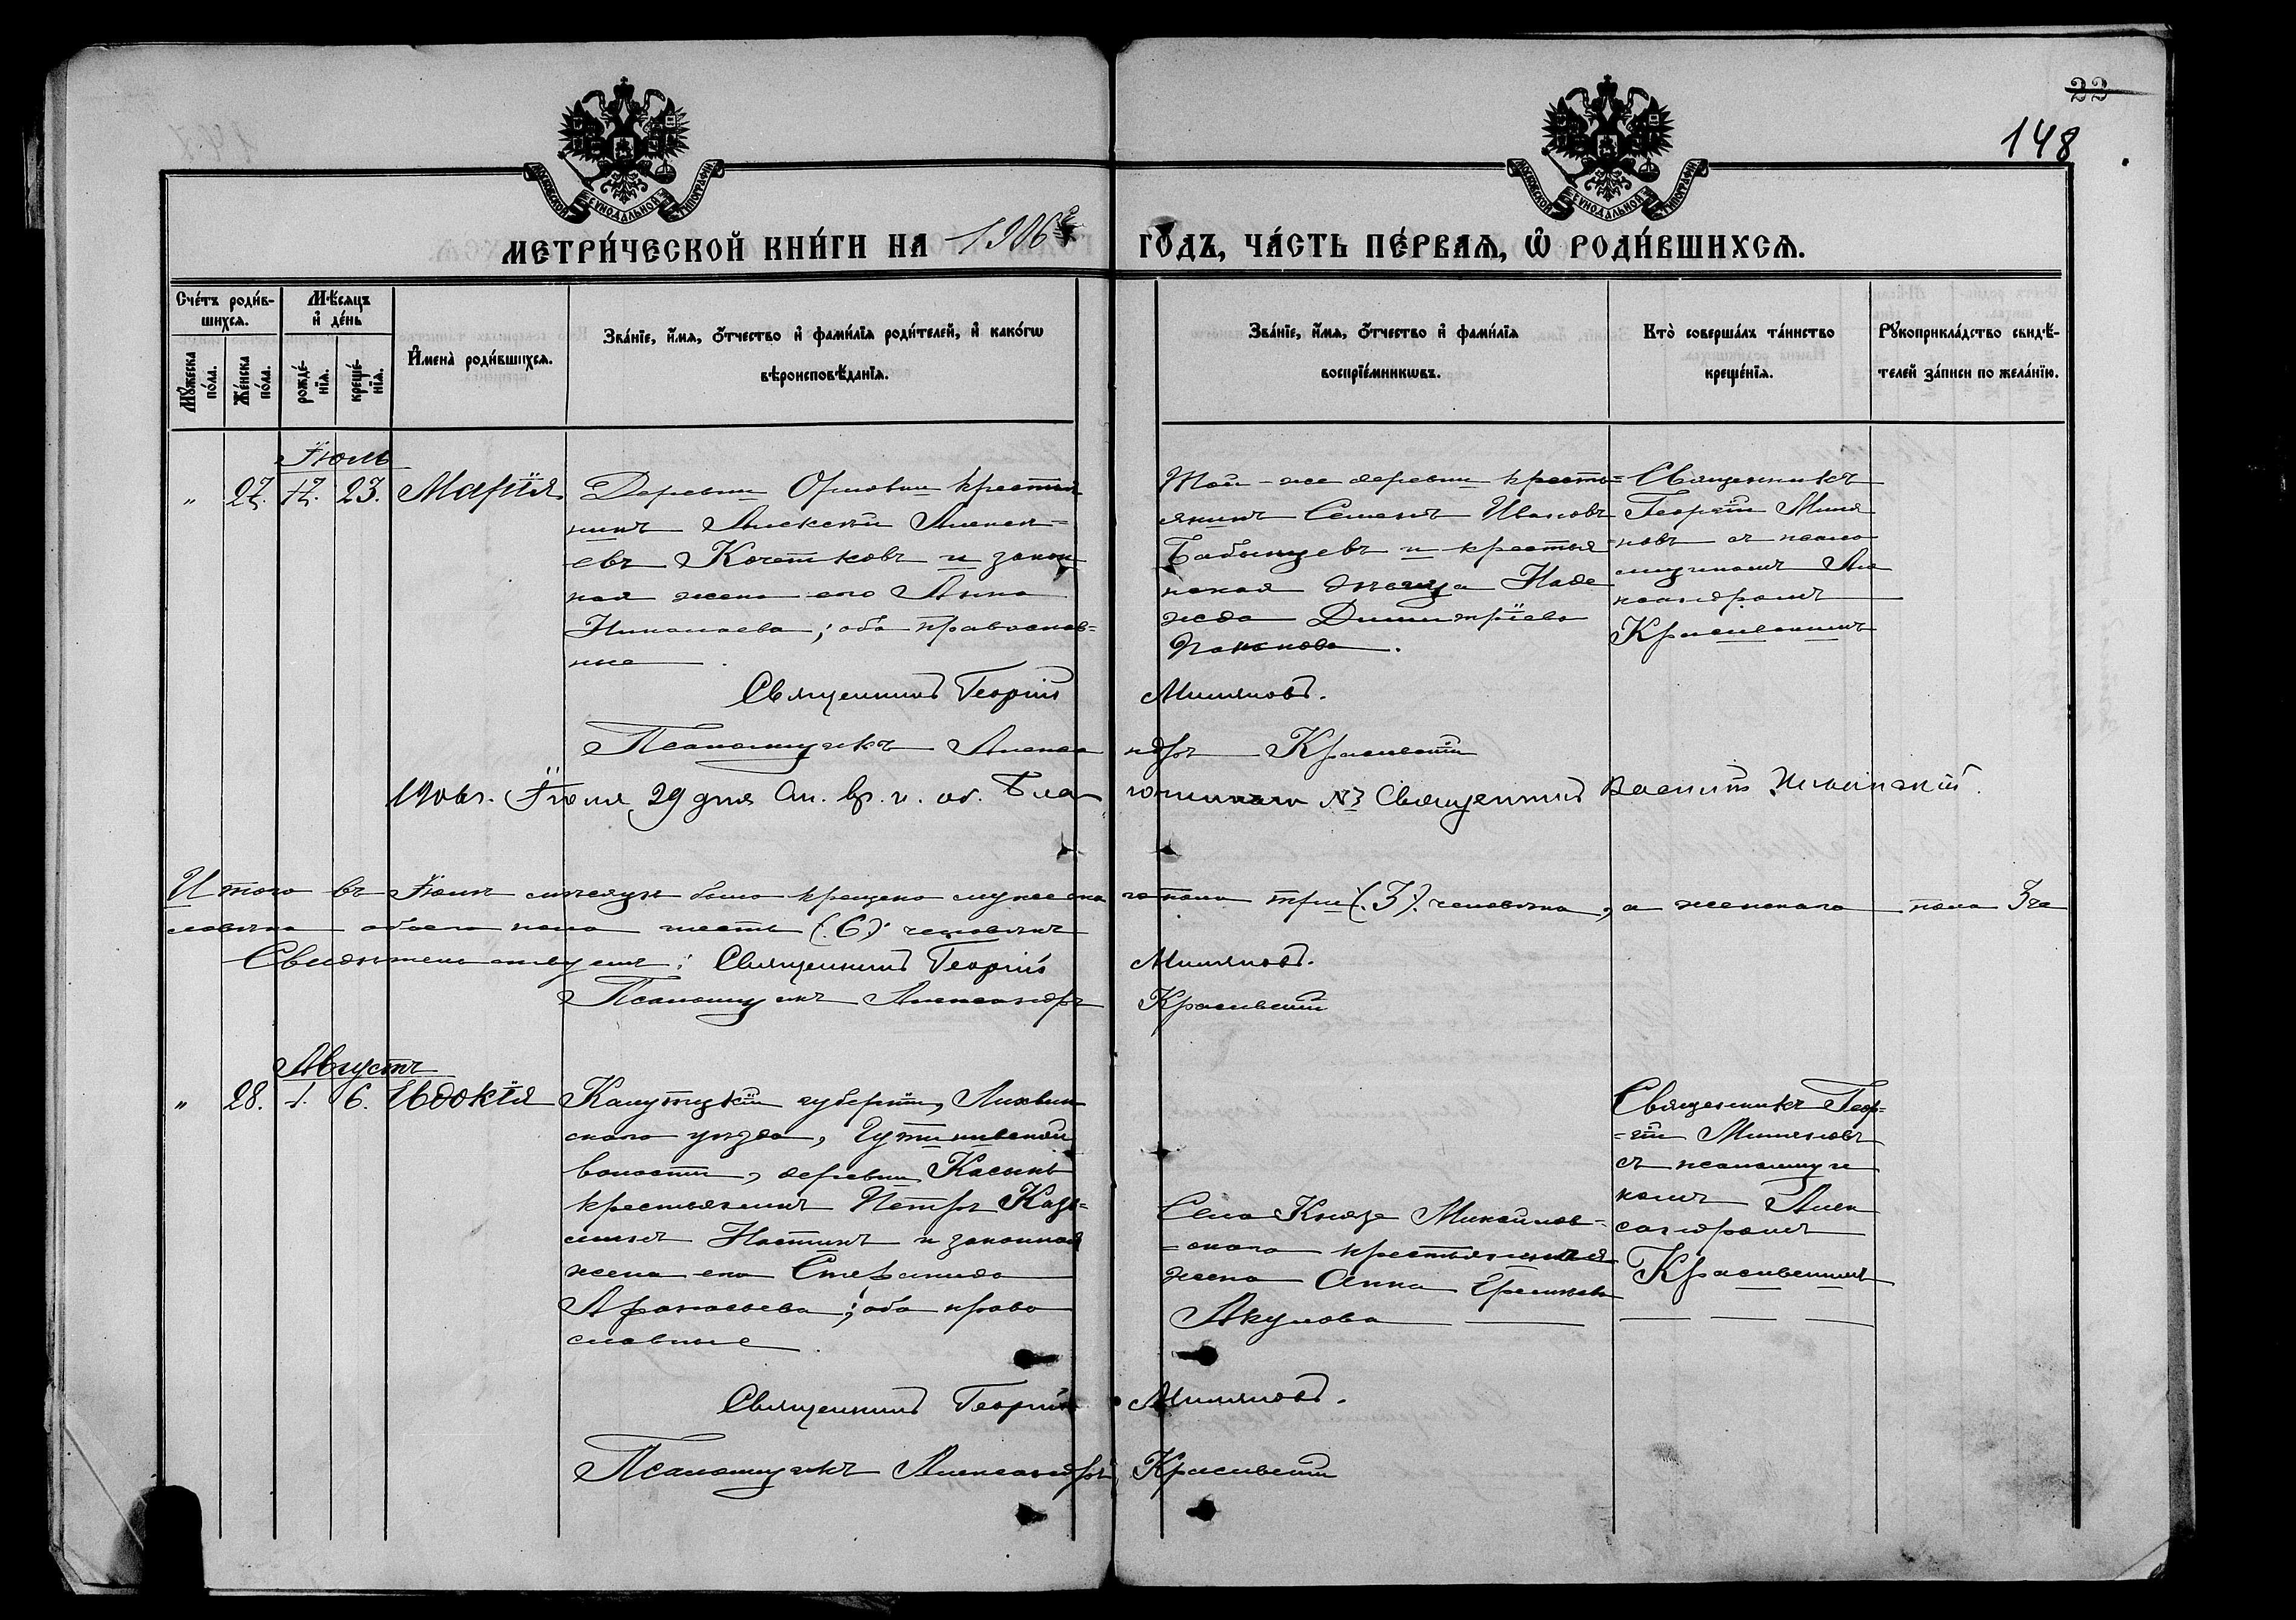 22
148
МОСКОВСКОЙ СѴНОДАЛЬНОЙ ТИПОГРАФІИ
МОСКОВСКОЙ СѴНОДАЛЬНОЙ ТИПОГРАФІИ
МЕТРИ́ЧЕСКОЙ КНИ́ГИ НА 1906й ГО́ДЪ, ЧА́СТЬ ПЕ́РВАѦ, Ѡ҆ РОДИ́ВШИХСѦ.
Сче́тъ роди́в-
шихсѧ.
Мꙋ́жеска
по́ла.
Же́нска
по́ла.
Мѣ́сѧцъ
и҆ де́нь
рожде́-
нїѧ.
креще́-
нїѧ.
И҆мена̀ роди́вшихсѧ.
Зва́нїе, и҆́мѧ, ѻ҆́тчество и҆ фами́лїѧ роди́телей, и҆ како́гѡ
вѣроисповѣ́данїѧ.
Зва́нїе, и҆́мѧ, ѻ҆́тчество и҆ фами́лїѧ
воспрїе́мникѡвъ.
Кто̀ соверша́лъ та́инство
креще́нїѧ.
Рꙋкоприкла́дство свидѣ́-
телей за́писи по жела́нїю.
Іюль
„ 27. 17. 23. Марія
Деревни Орловки крестья
нинъ Алексѣй Алексѣ=
евъ Кочетковъ и закон
ная жена его Анна
Николаева; оба православ=
ные.
Той-же деревни кресть=
янинъ Семенъ Ивановъ
Бабынцевъ и крестья=
нская дѣвица Наде
жда Димитріева
Священникъ
Георгій Миля
новъ съ псало
мщикомъ Але
ксандромъ
Красивскимъ
Священникъ Георгій Миляновъ.
Псаломщикъ Александръ Красивскій
1906 г. Іюля 29 дня Св. вѣр. и. об. Благочиннаго № 3 Священникъ Василій
Итого въ Іюлѣ мѣсяцѣ было крещено мужескаго пола три (3) человѣка, а женскаго пола 3 че
ловѣка обоего пола шесть (6) человѣкъ
Свидѣтельствуемъ: Священникъ Георгій Миляновъ.
Псаломщикъ Александръ Красивскій
Августъ
„ 28. 1. 6. Евдокія
Калужской губерніи, Лихвин
скаго уѣзда,
волости, деревни
крестьянинъ Петръ Козь=
минъ и законная
жена его Стефанида
Афанасьева; оба право
славные.
Села Князе Михайлов=
=скаго крестьянская
жена Анна
Акулова
Священникъ Геор=
=гій Миляновъ
съ псаломщи
комъ Алек
сандромъ
Красивскимъ
Священникъ Георгій Миляновъ.
Псаломщикъ Александръ Красивскій